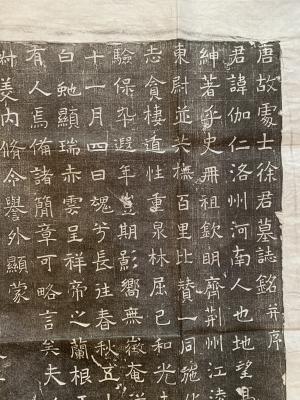 唐故處士徐君墓誌銘并序
君諱伽仁洛州河南人也地望
紳著乎史冊祖欽明齊荊州江陵
東尉並共撫百里比贊一同
志貪棲道性重泉林屈己和光
驗保永遐年豈期影嚮無徵奄
十一月四日魂兮長往春秋五十
白虵顯瑞赤雲呈祥帝之蘭根
有人焉備諸簡章可略言矣夫
美內脩令譽外顯蒙